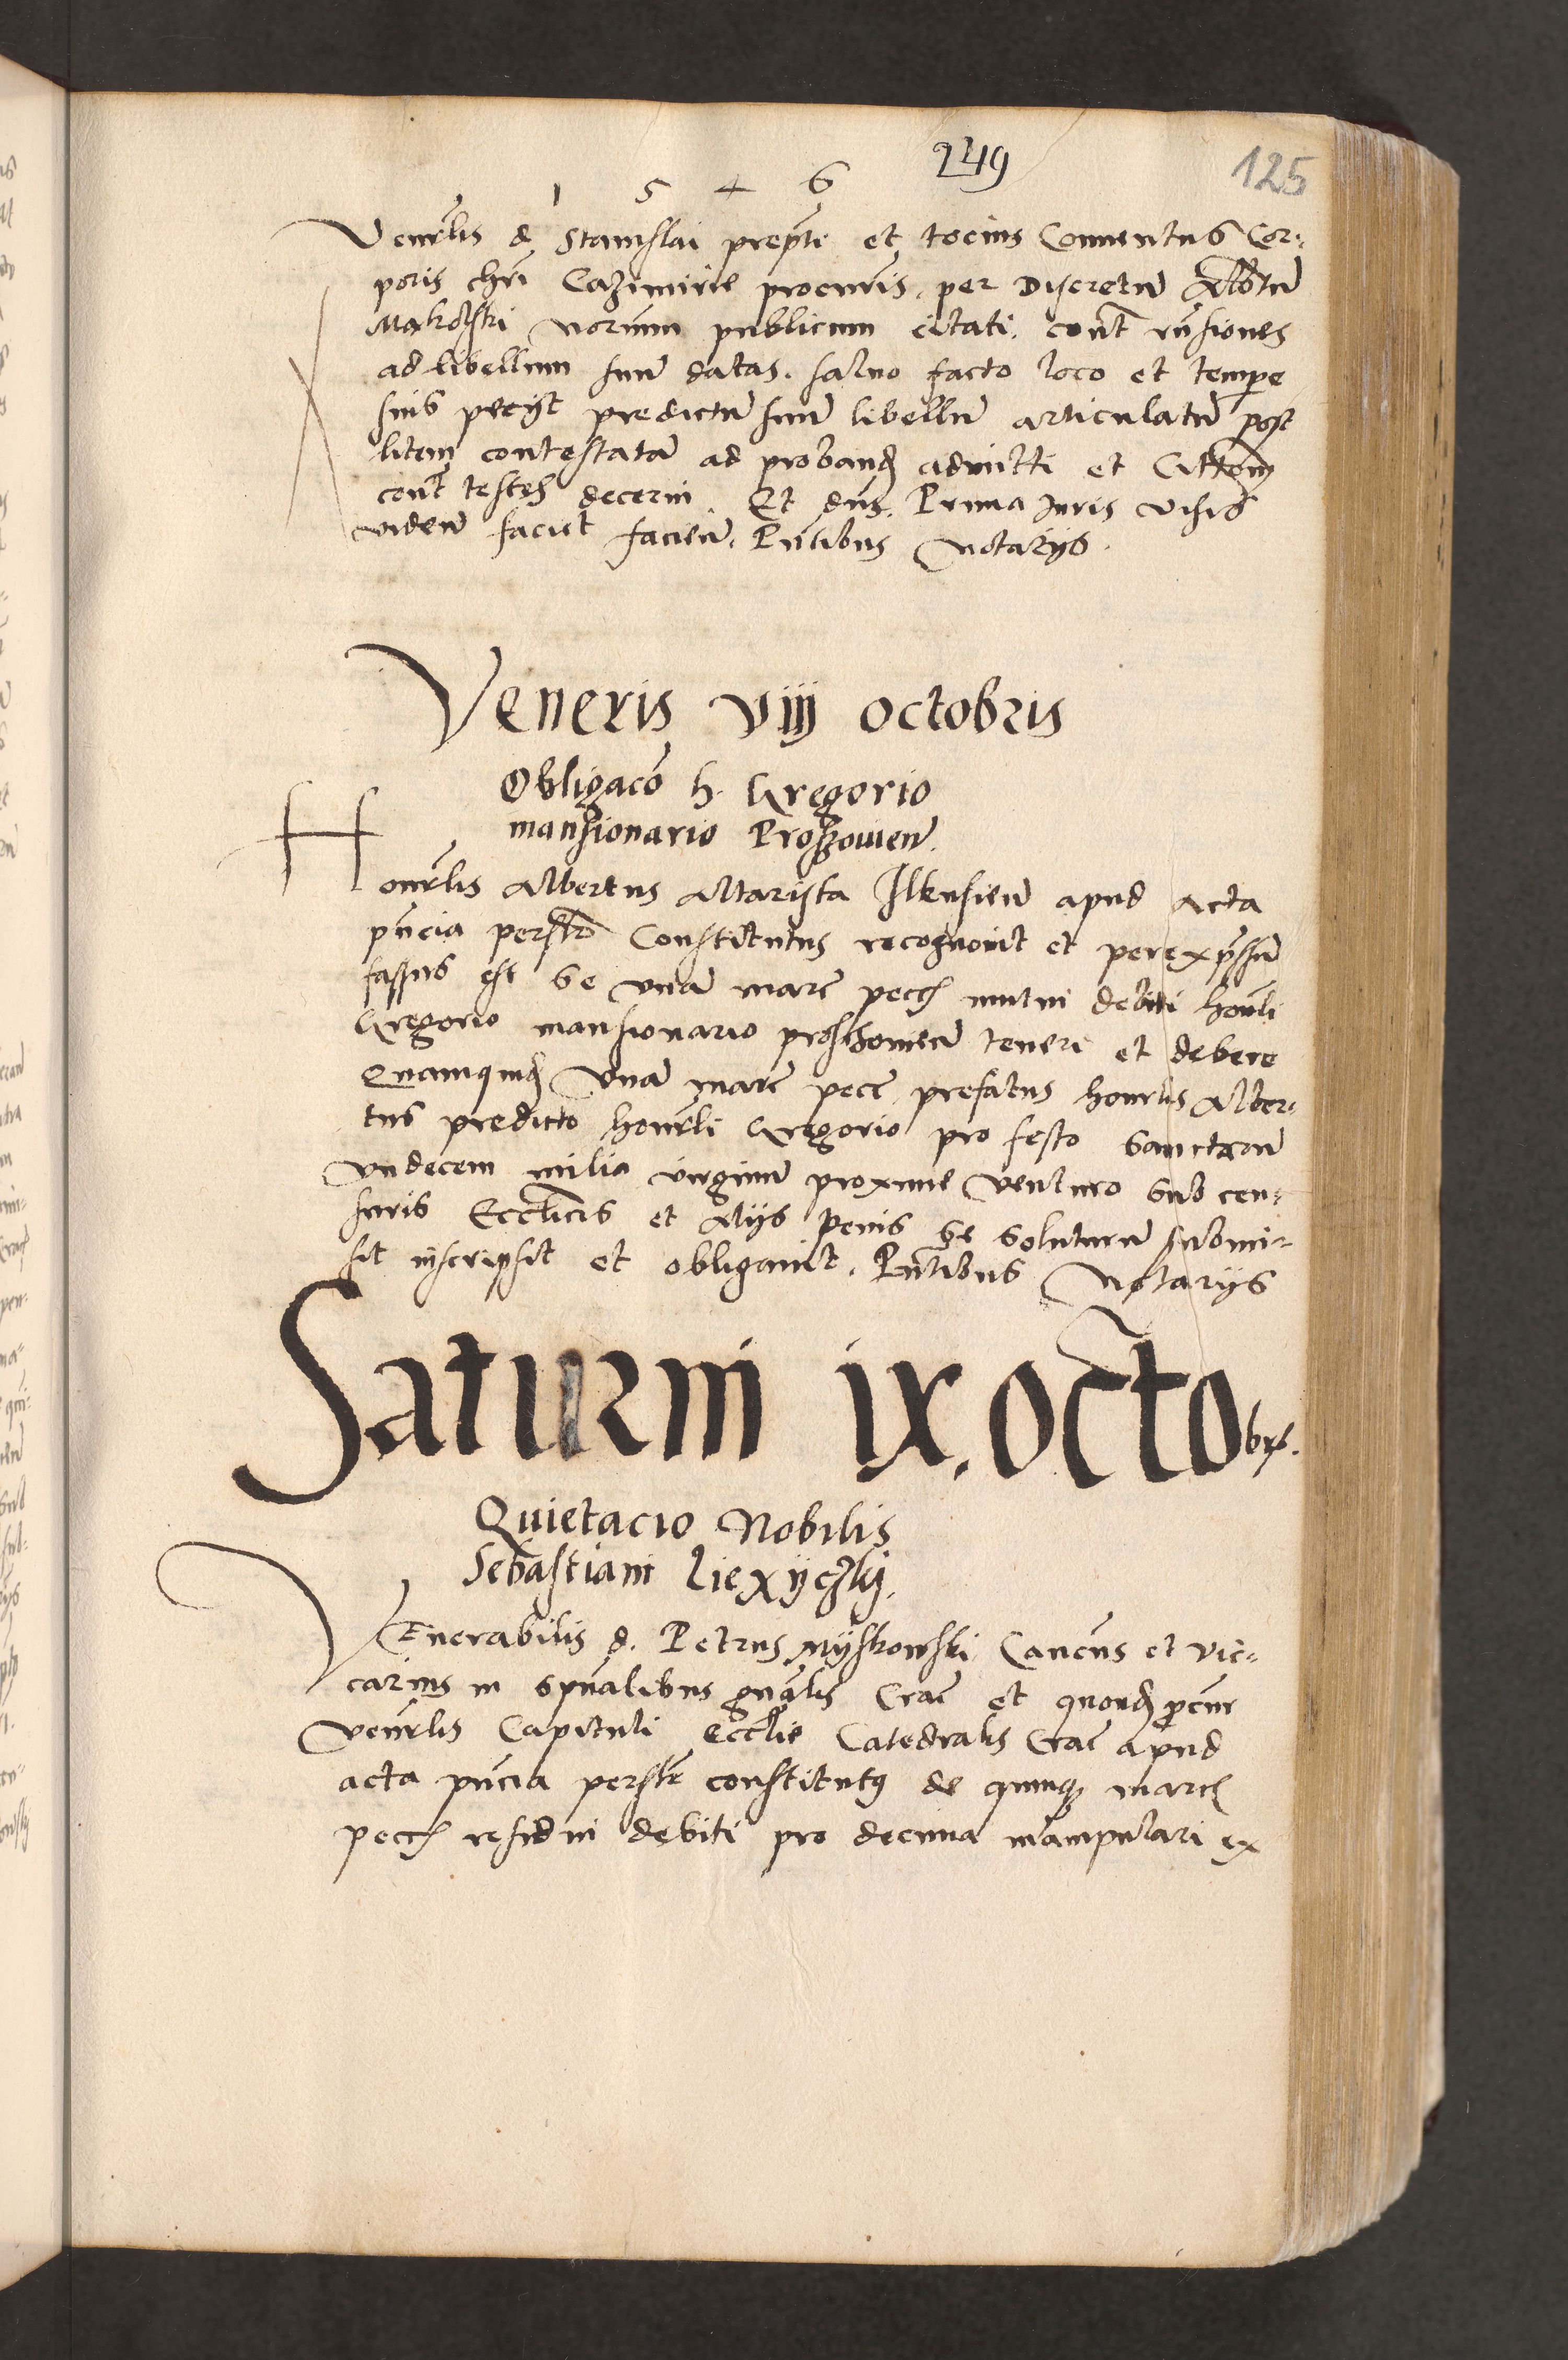 249
125
1 5 4 6
Venrlis d Stanislai prepti et tocius Conventus Cor-
poris chri Cazimirie procuris, per Discretu Albtu
Makolski norium publicum citati, cont rnsiones
ad libellum suu datas, salvo facto loco et tempe
suis petijt predictu suu libellu articulatu post
litem contestata ad proband admitti et Cittem
cont testes decerni. Et dns. Prima Juris visis
viden faciet facien. Pntibus Notarijs.
Veneris viij octobris
Obligaco h. Gregorio
mansionario Proszovien.
Honrlis Albertus Altarista Ilkusien apud Acta
pncia persltr Constitutus recognovit et per expssu
fassus est se vna marc pecc mutui debiti honrli
Gregorio mansionario proschovien teneri et debere
Quamquid vna marc pecc prefatus honrlis Alber-
tus predicto honrli Gregorio pro festo Sanctaru
vndecem milia virginu proxime venturo sub cen-
suris Ecclicis et Alijs penis se soluturu submi-
sit inscripsit et obligavit. Pntibus Notarijs
Saturni ix. octobrs.
Quietacio Nobilis
Sebastiani
Venerabilis d. Petrus Myskowski Cancus et vic-
carius in spualibus gnalis Crac et quond pcur
venrlis Capituli ecclie Catedralis Crac apud
acta pncia persltr constitutq de quinq marc
pecc residui debiti pro decima manipulari ex